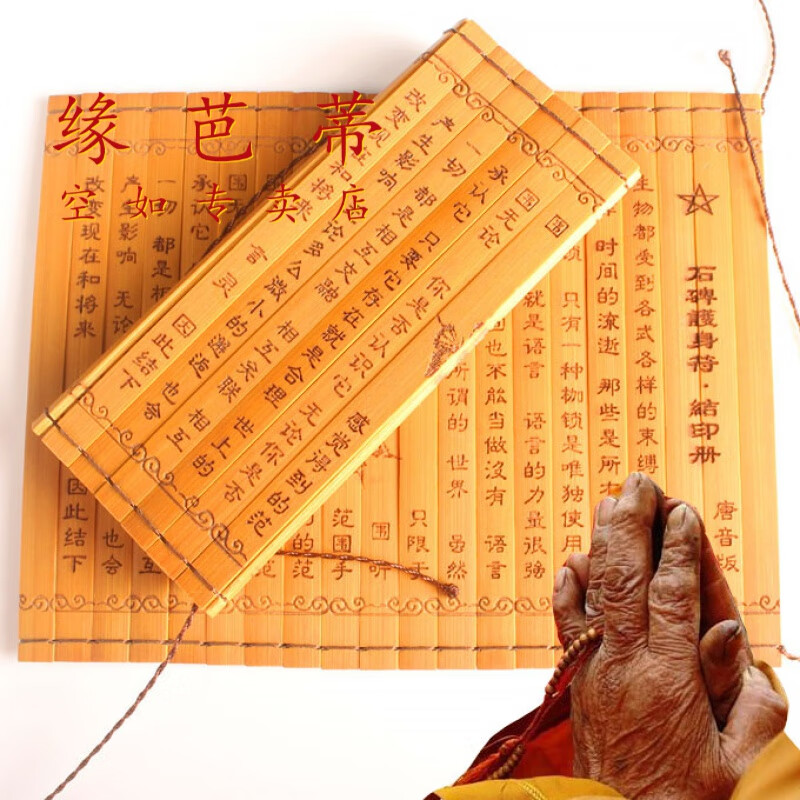 缘芭蒂
空如专卖店
围
无论 你是否认识它 感觉得到的范
围 无论你是否
承认它 只要它存在就是合理 世上的
一切 都是相互交融 相互关联 相互
产生影响 无论多么微小的邂逅 也会
改变现在和将来 因此结下
言灵
石碑護身符·結印册
唐音版
生物都受到各式各样的束缚
时间的流逝 那些是所
锁 只有一种枷锁是唯独使用
就是语言 语言的力量很强
也不能当做没有 语言
所谓的 世界 虽然
只限于
听
范围
的范
围
承认它
一切 都是
产生影响 无论 也会
改变现在和将来 因此结下